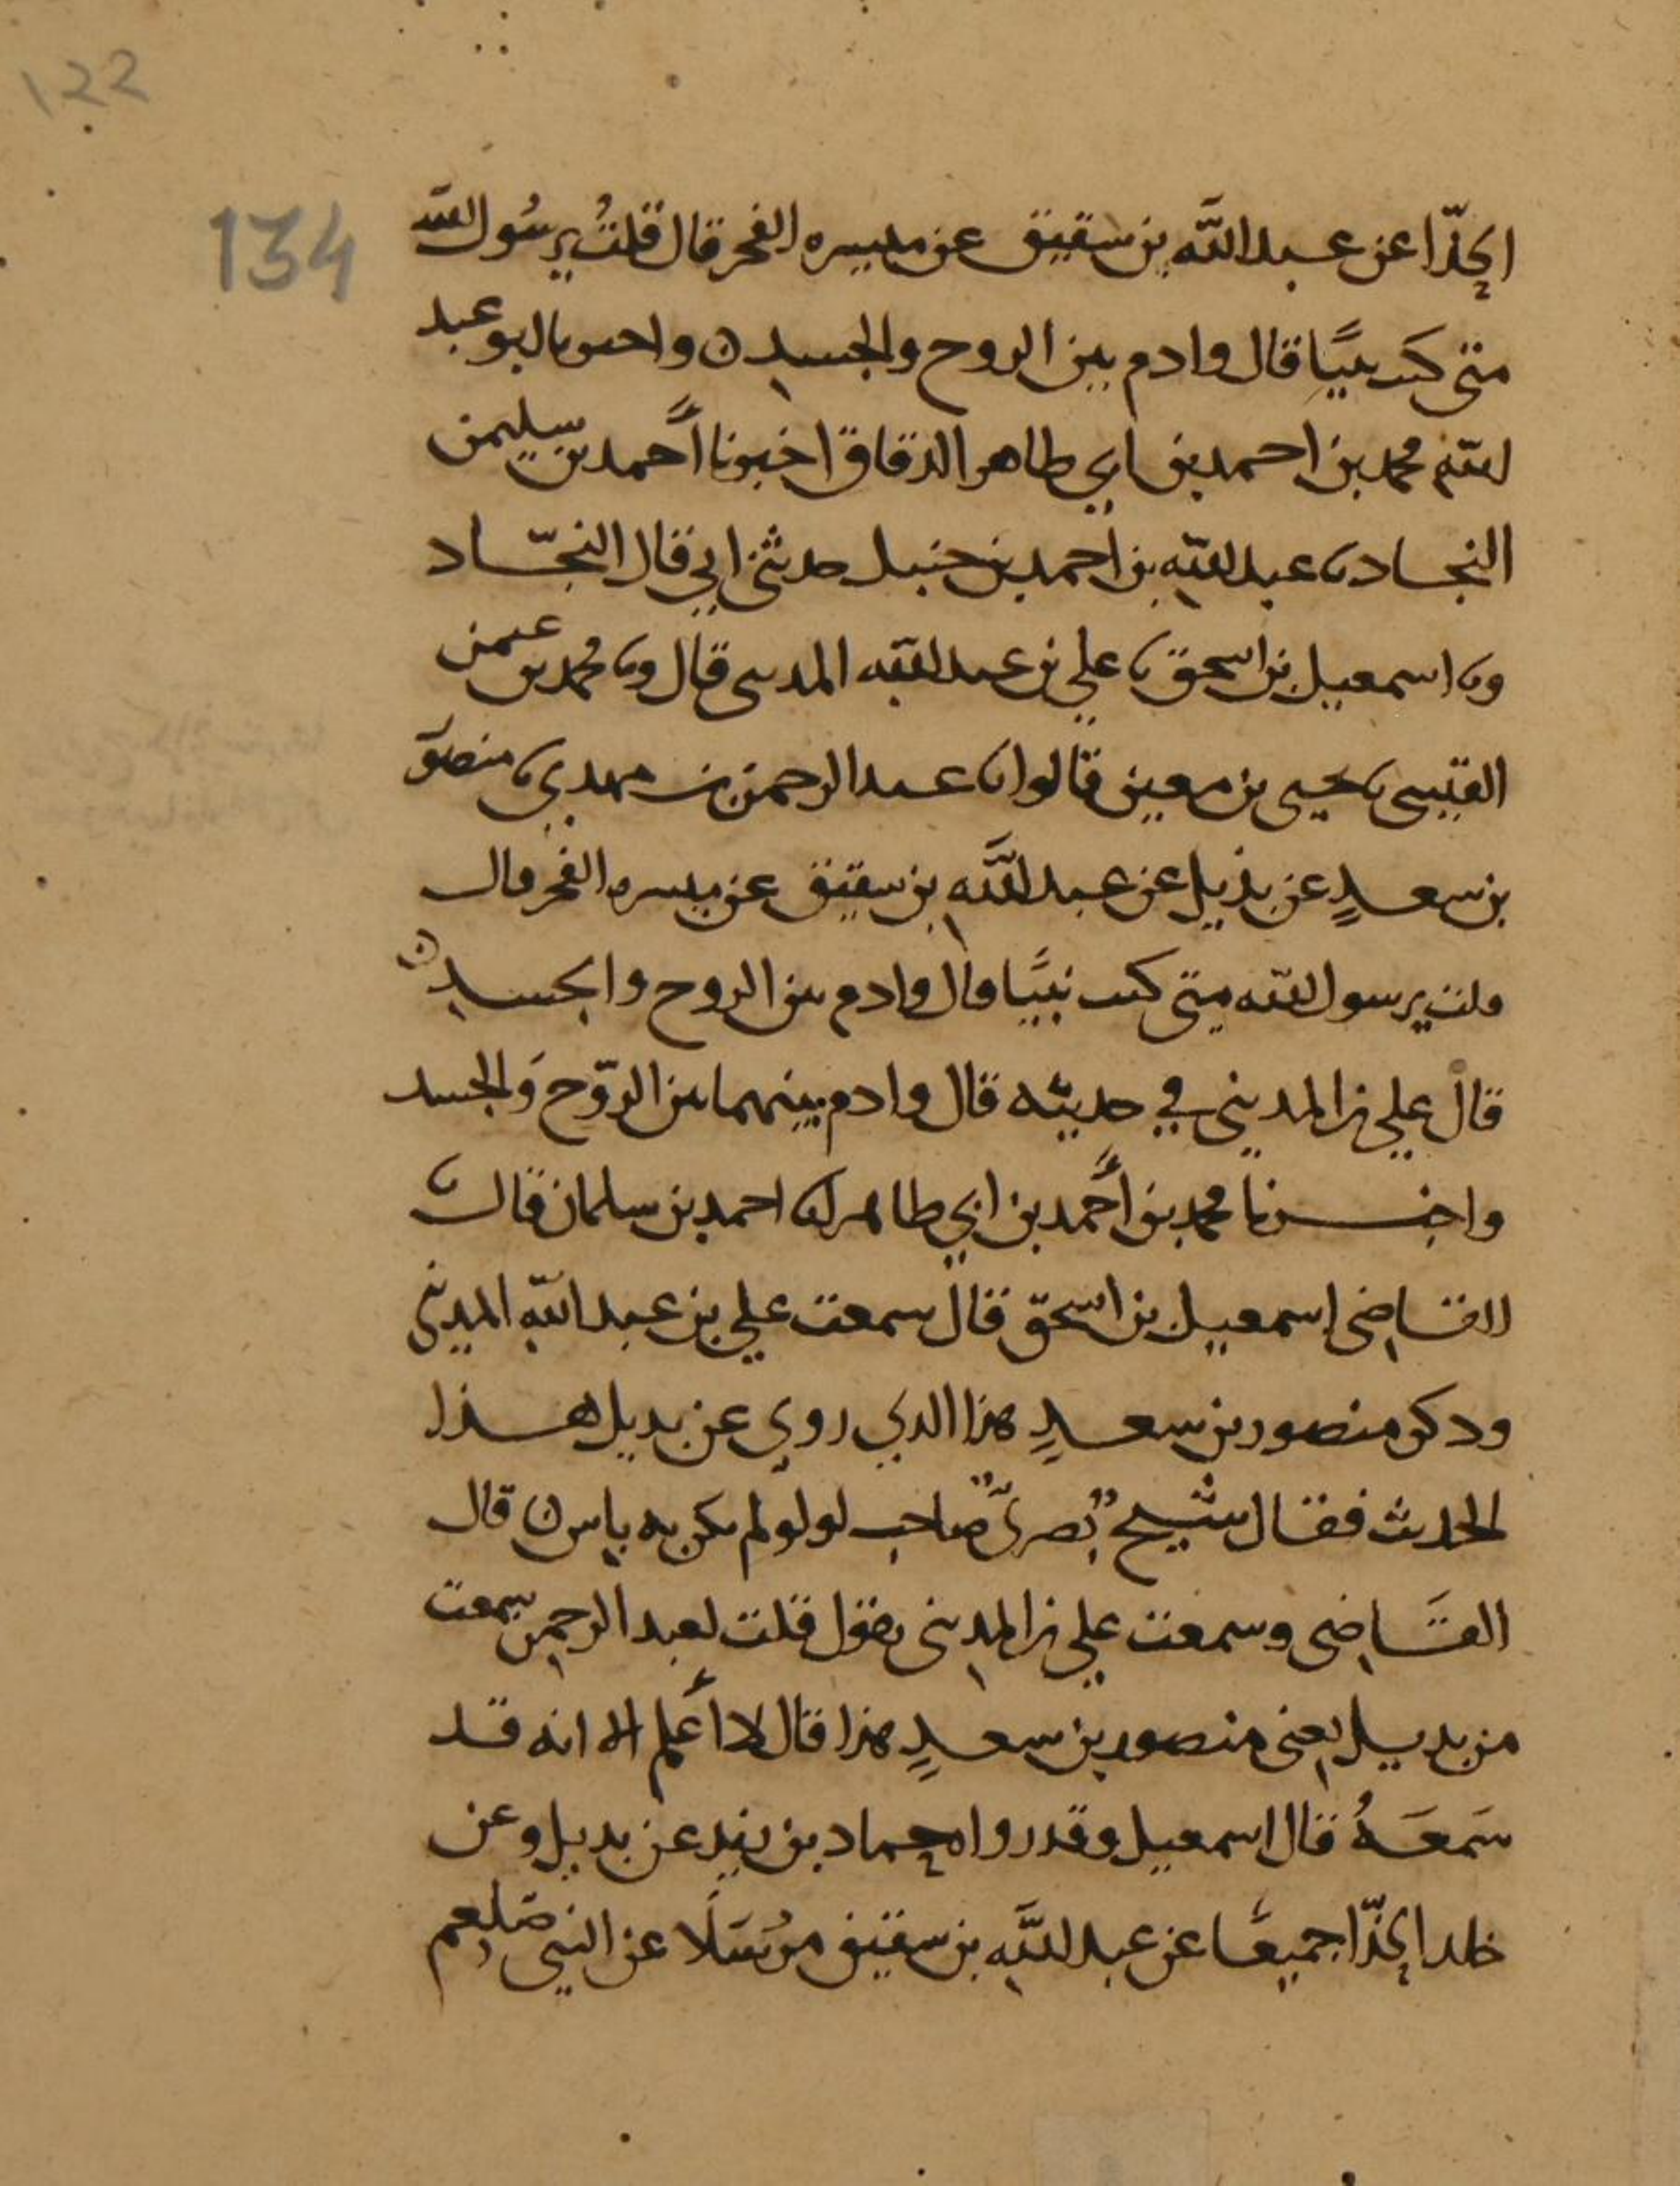 ١٢٢
134
الحذّا عن عبد اللَّه بن سقيق عن ميسره الفجر قال قلتُ يرسُول اللّه
متى كنت نبيًا قال وادم بين الروح والجسد ن واخبرنا ابو عبد
اللّه محمد بن احمد بن ابي طاهر الدقاق اخبرنا أحمد بن سليمن
النجاد نا عبد اللّه بن احمد بن حنبل حدثنى ابي قال النجّاد
ونا اسمعيل بن اسحق نا علي بن عبد اللّه المدينى قال ونا محمد بن عثمن
القيسى نا يحيى بن معين قالوا نا عبد الرحمن بن مهدي نا منصور
بن سعدٍ عن بديل عن عبد اللَّه بن سقيق عن ميسره الفجر قال
قلت يرسول اللّه متى كنت نبيًا قال وادم بين الروح والجسد ن
قال علي بن المديني في حديثه قال وادم بينهما بين الرّوح وَالجسد
واخبرنا محمد بن أحمد بن ابي طاهر انا احمد بن سلمان قال نا
القاضى إسمعيل بن اسحق قال سمعت علي بن عبد اللّه المدينى
وذكر منصور بن سعدٍ هذا الذي روى عن بديل هذا
الحديث فقال شيخٌ بصريٌّ صاحب لولو لم يكن به باس ن قال
القَاضى وسمعت علي بن المدينى يقول قلت لعبد الرحمن سمعت
من بديل يعنى منصور بن سعدٍ هذا قال لا أعلم الا انه قد
سَمعَهُ قال اسمعيل وقد رواه حماد بن زيد عن بديل وعن
خلد الحذّا جميعًا عن عبد اللَّه بن سقيق مُرسَلًا عن النبي صلعم